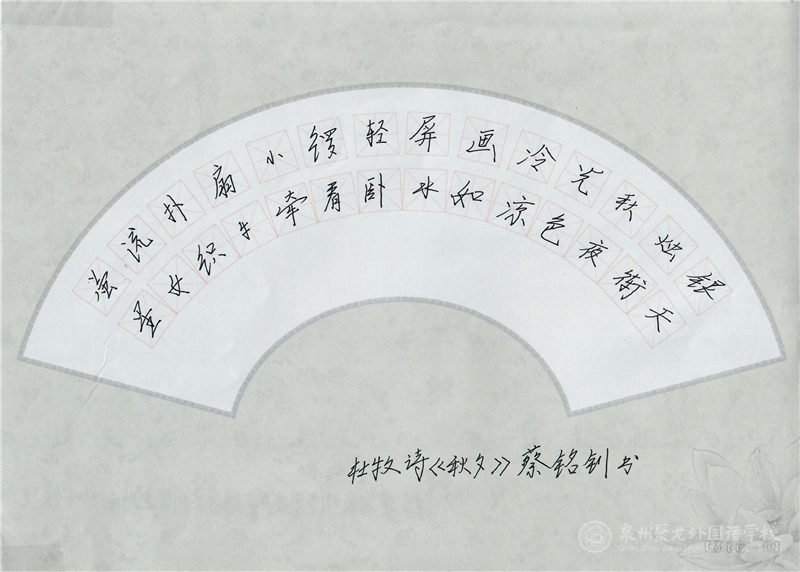 银烛秋光冷画屏轻锣小扇扑流萤
天街夜色凉如水卧看牵牛织女星
杜牧诗《秋夕》蔡铭钊书
泉州聚龙外国语学校